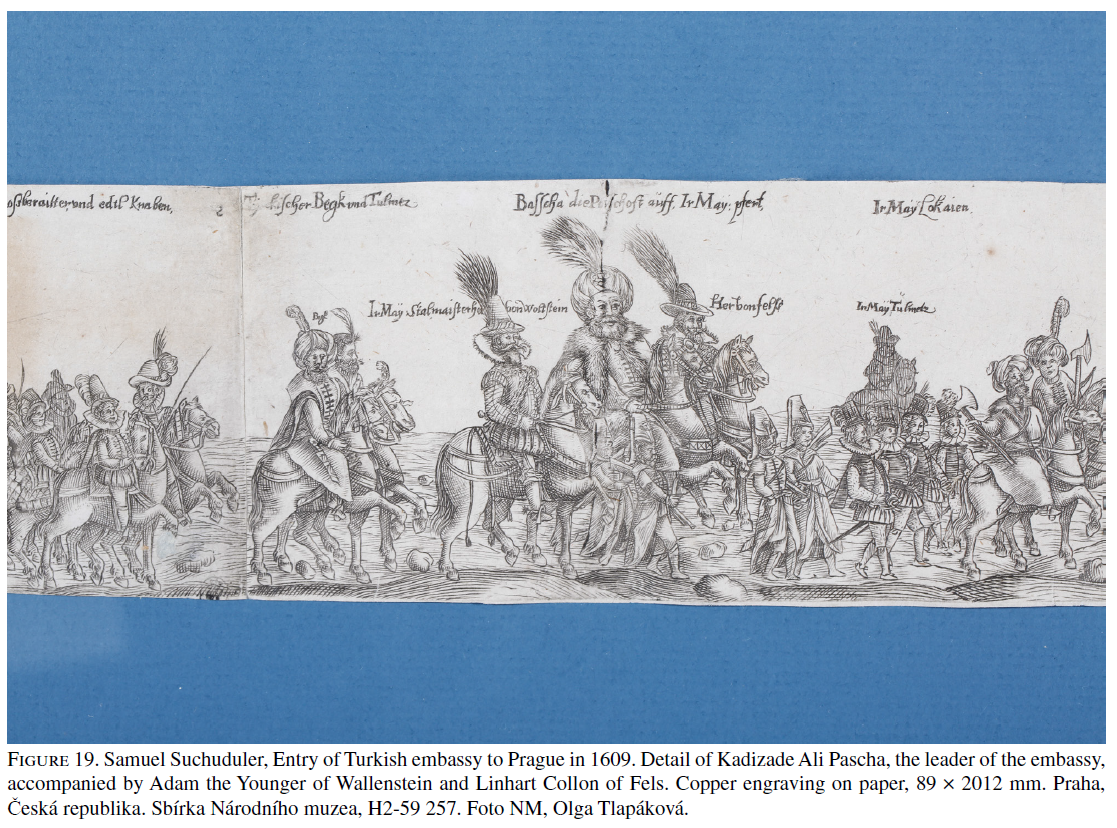 oßberaitter, und edil Knaben,
2
Tü kischer Begk und Tulmetz
Basscha die Potschaft auff Ir May: pfert,
Ir Maÿ Lokaien
Begk
Ir Maÿ Stalmaister he von Wolstein
Her von felss
Ir May Tulmetz
FIGURE 19. Samuel Suchuduler, Entry of Turkish embassy to Prague in 1609. Detail of Kadizade Ali Pascha, the leader of the embassy,
accompanied by Adam the Younger of Wallenstein and Linhart Collon of Fels. Copper engraving on paper, 89 × 2012 mm. Praha,
Česká republika. Sbírka Národního muzea, H2-59 257. Foto NM, Olga Tlapáková.